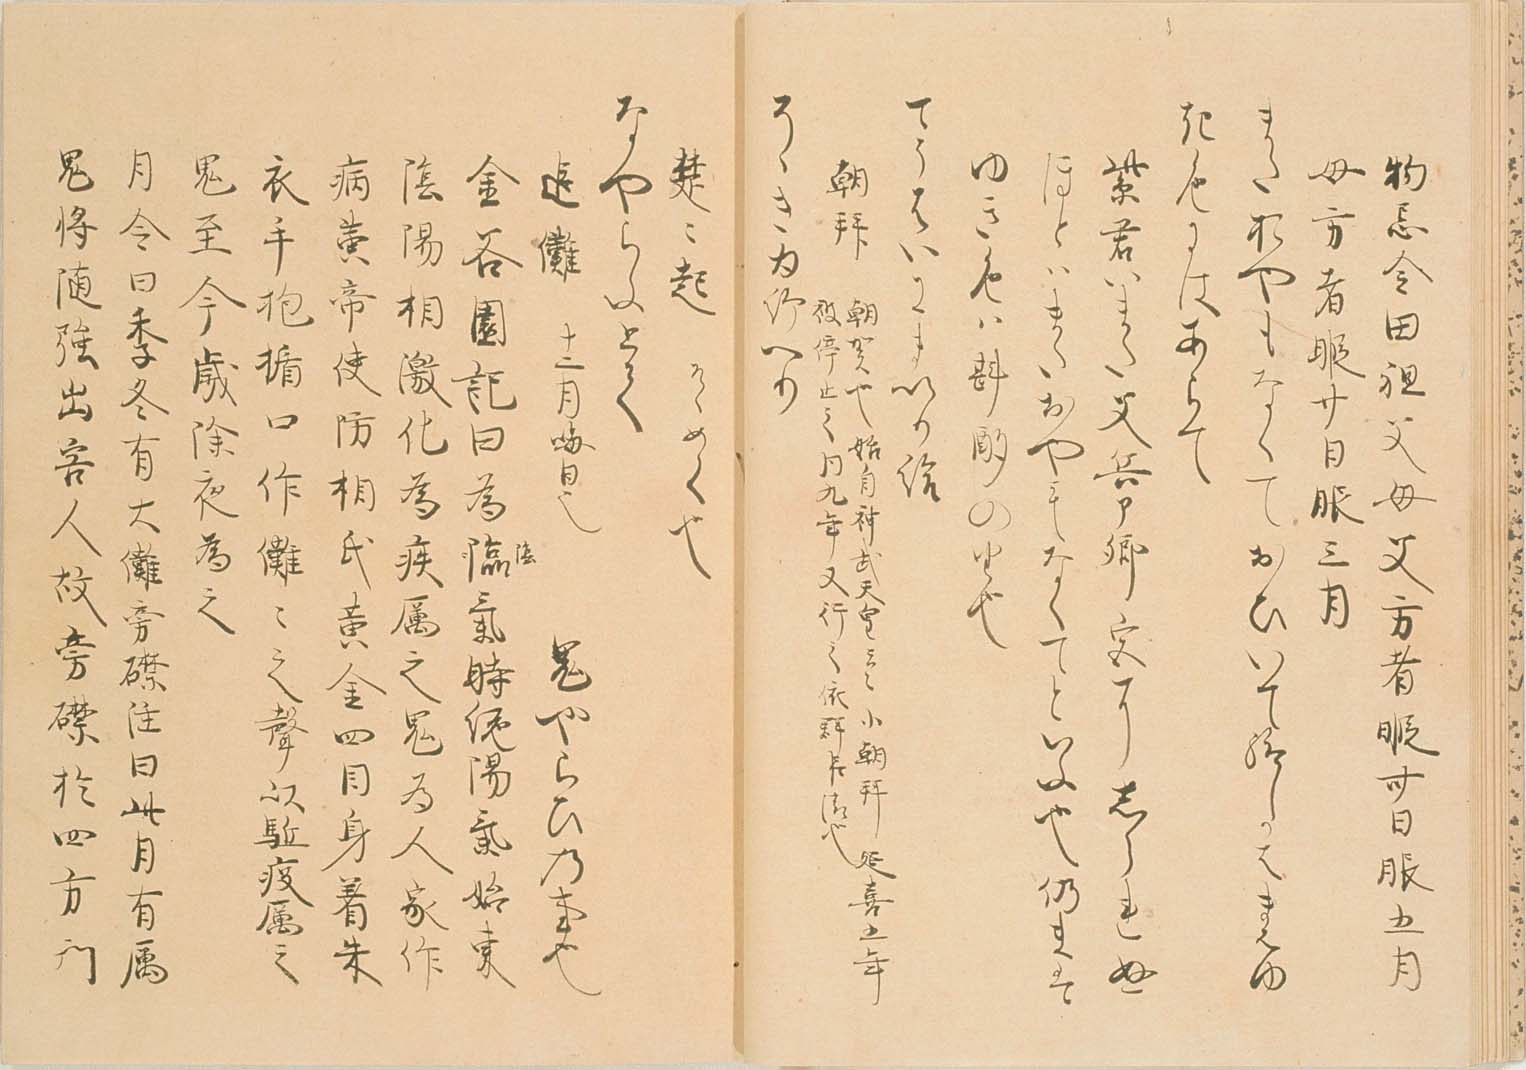 物忌令曰祖父母父方者暇卅日服五月
母方者暇廿日服三月
また おやもなくておひいて給しかはまはゆ
き色にはあらて
紫君いまた父兵卩卿宮に志られぬ
ほとはまたおやもなくてといふ也仍まはゆ
ゆき色は斟酌の心也
てうはいにまいり給
朝拝 朝賀也始自神武天皇云々小朝拝延喜五年
被停止之同九年又行之依群臣請也
そゝきゐ給へり
楚々起 そゝめく也
なやらふとて
追儺 十二月晦日也 鬼やらひの事也
金谷園記曰為臨氣時絶陽氣始来
陰
陰陽相激化為疾厲之鬼為人家作
病黄帝使防相氏黄金四目身着朱
衣手抱楯口作儺々之聲以駈疫厲之
鬼至今歳除夜為之
月令曰季冬有大儺旁磔注曰此月有厲
鬼将随強出害人故旁磔於四方門